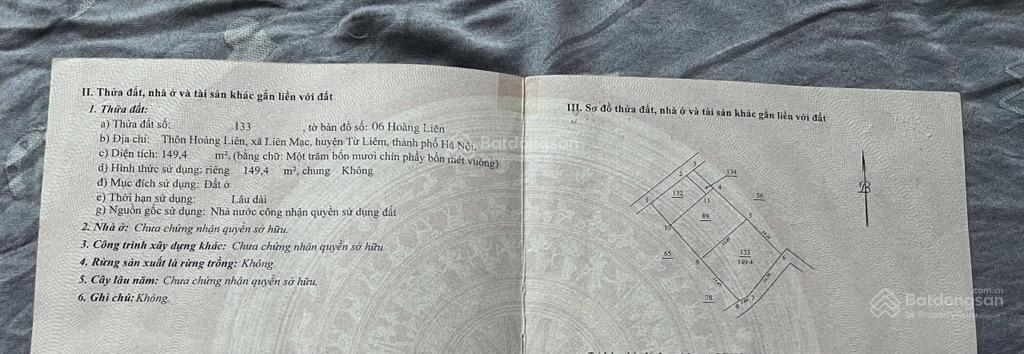 II. Thửa đất, nhà ở và tài sản khác gắn liền với đất
1. Thửa đất:
a) Thửa đất số: 133, tờ bản đồ số: 06 Hoàng Liên
b) Địa chỉ: Thôn Hoàng Liên, xã Liên Mạc, huyện Từ Liêm, thành phố Hà Nội.
c) Diện tích: 149,4 m², (bằng chữ: Một trăm bốn mươi chín phẩy bốn mét vuông)
d) Hình thức sử dụng: riêng 149,4 m², chung Không
đ) Mục đích sử dụng: Đất ở
e) Thời hạn sử dụng: Lâu dài
g) Nguồn gốc sử dụng: Nhà nước công nhận quyền sử dụng đất
2. Nhà ở: Chưa chứng nhận quyền sở hữu.
3. Công trình xây dựng khác: Chưa chứng nhận quyền sở hữu
4. Rừng sản xuất là rừng trồng: Không.
5. Cây lâu năm: Chưa chứng nhận quyền sở hữu.
6. Ghi chú: Không.
III. Sơ đồ thửa đất, nhà ở và tài sản khác gắn liền với đất
B
3
2
134
1
132
4
56
11
10
89
5
65
9
133
149.4
6
78
8
7
Batdongsan
Batdongsan
.com.vn
by PropertyGuru